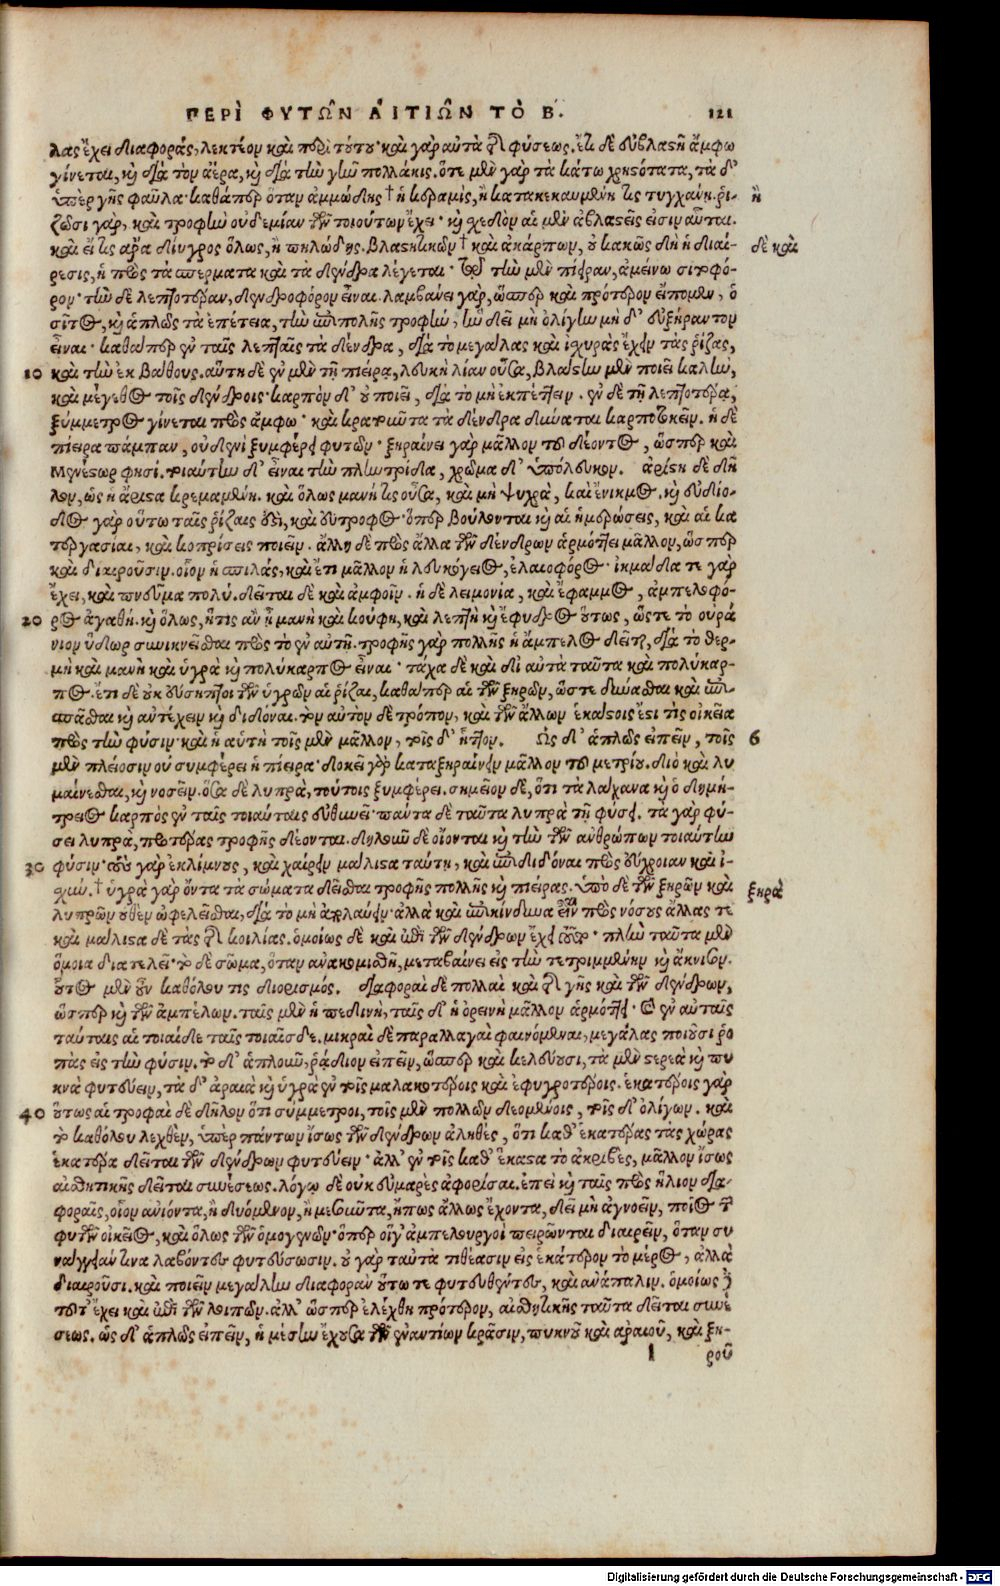 ΠΕΡῚ ΦΥΤΩ͂Ν ΑἸΤΙΩ͂Ν ΤῸ Β. 121
λας ἔχει διαφοράς, λεκτέον καὶ περὶ τούτου· καὶ γὰρ αὐτὰ τῆς φύσεως. ἔτι δὲ εὐβλαστῆ ἄμφω
γίνεται, καὶ διὰ τὸν ἀέρα, καὶ διὰ τὴν γῆν πολλάκις. ὅτε μὲν γὰρ τὰ κάτω χρηστότατα, τὰ δ'
ὑπὲρ γῆς φαῦλα· καθάπερ ὅταν ἀμμώδης † ἡ κεραμὶς, ἢ κατακεκαυμένη τις τυγχάνῃ. ῥι- ἢ
ζῶσι γὰρ, καὶ τροφὴν οὐδεμίαν τῶν τοιούτων ἔχει· καὶ σχεδὸν αἱ μὲν ἀβλαστεῖς εἰσιν αὗται.
καὶ εἴ τις ἄρα δίυγρος ὅλως, ἢ πηλώδης. βλαστητικῶν † καὶ ἀκάρπων, οὐ κακῶς δὴ ἡ διαί- δὲ καὶ
ρεσις, ἡ πρὸς τὰ σπέρματα καὶ τὰ δένδρα λέγεται· τὸ τὴν μὲν πίειραν, ἀμείνω σιτοφό-
ρον· τὴν δὲ λεπτοτέραν, δενδροφόρον εἶναι. λαμβάνει γὰρ, ὥσπερ καὶ πρότερον εἴπομεν, ὁ
σῖτος, καὶ ἁπλῶς τὰ ἐπέτεια, τὴν ἐπιπολῆς τροφὴν, ἣν δεῖ μὴ ὀλίγην μὴ δ' εὐξήραντον
εἶναι· καθάπερ ἐν ταῖς λεπταῖς τὰ δένδρα, διὰ τὸ μεγάλας καὶ ἰσχυρὰς ἔχειν τὰς ῥίζας,
10 καὶ τὴν ἐκ βάθους. αὕτη δὲ ἐν μὲν τῇ πιείρᾳ, λευκὴ λίαν οὖσα, βλάστην μὲν ποιεῖ καλὴν,
καὶ μέγεθος τοῖς δένδροις· καρπὸν δ' οὐ ποιεῖ, διὰ τὸ μὴ ἐκπέττειν. ἐν δὲ τῇ λεπτοτέρᾳ,
ξύμμετρος γίνεται πρὸς ἄμφω· καὶ κρατοῦντα τὰ δένδρα δύναται καρποτοκεῖν. ἡ δὲ
πίειρα πάμπαν, οὐδενὶ ξυμφέρει φυτῶν· ξηραίνει γὰρ μᾶλλον τοῦ δέοντος, ὥσπερ καὶ
Μενέστωρ φησί. τοιαύτην δ' εἶναι τὴν πλυντρίδα, χρῶμα δ' ὑπόλευκον. ἀρίστη δὲ δῆ
λον, ὡς ἡ ἄριστα κεραμένη. καὶ ὅλως μανή τις οὖσα, καὶ μὴ ψυχρὰ, καὶ ἔνικμος. καὶ εὐδίο-
δος γὰρ οὕτω ταῖς ῥίζαις ἐστὶ, καὶ εὔτροφος· ὅπερ βούλονται καὶ αἱ ἡμερώσεις, καὶ αἱ κα
τεργασίαι, καὶ κοπρίσεις ποιεῖν. ἄλλη δὲ πρὸς ἄλλα τῶν δένδρων ἁρμόττει μᾶλλον, ὥσπερ
καὶ διαιροῦσιν. οἷον ἡ σπιλὰς, καὶ ἔτι μᾶλλον ἡ λευκόγειος, ἐλαιοφόρος· ἰκμάδα τε γὰρ
ἔχει, καὶ πνεῦμα πολύ. δεῖται δὲ καὶ ἀμφοῖν. ἡ δὲ λειμονία, καὶ ἔφαμμος, ἀμπελοφό-
20 ρος ἀγαθή. καὶ ὅλως, ἥτις ἂν ᾖ μανὴ καὶ κούφη, καὶ λεπτὴ καὶ ἔφυδρος οὕτως, ὥστε τὸ οὐρά
νιον ὕδωρ συνικνεῖσθαι πρὸς τὸ ἐν αὐτῇ. τροφῆς γὰρ πολλῆς ἡ ἄμπελος δεῖται, διὰ τὸ θερ-
μὴ καὶ μανὴ καὶ ὑγρὰ καὶ πολύκαρπος εἶναι· τάχα δὲ καὶ δι' αὐτὰ ταῦτα καὶ πολύκαρ-
πος. ἔτι δὲ οὐκ εὔσηπτοι τῶν ὑγρῶν αἱ ῥίζαι, καθάπερ αἱ τῶν ξηρῶν, ὥστε δύνασθαι καὶ ἐπι-
σπᾶσθαι καὶ ἀντέχειν καὶ διδόναι. τὸν αὐτὸν δὲ τρόπον, καὶ τῶν ἄλλων ἑκάστοις ἔστι τὶς οἰκεῖα
πρὸς τὴν φύσιν· καὶ ἡ αὐτὴ τοῖς μὲν μᾶλλον, τοῖς δ' ἧττον. Ὡς δ' ἁπλῶς εἰπεῖν, τοῖς 6
μὲν πλείοσιν οὐ συμφέρει ἡ πίειρα· δοκεῖ γὰρ καταξηραίνειν μᾶλλον τοῦ μετρίου. διὸ καὶ λυ
μαίνεσθαι, καὶ νοσεῖν. ὅσα δὲ λυπρὰ, τούτοις ξυμφέρει. σημεῖον δὲ, ὅτι τὰ λάχανα καὶ ὁ δημή-
τρειος καρπὸς ἐν ταῖς τοιαύταις εὐθενεῖ· πάντα δὲ ταῦτα λυπρὰ τῇ φύσει. τὰ γὰρ φύ-
σει λυπρὰ, πιοτέρας τροφῆς δέονται. δηλοῦν δὲ οἴονται καὶ τὴν τῶν ἀνθρώπων τοιαύτην
30 φύσιν· τοὺς γὰρ ἐκλίμνους, καὶ χαίρειν μάλιστα ταύτῃ, καὶ ἐπιδιδόναι πρὸς εὔχροιαν καὶ ἰ-
σχύν. † ὑγρὰ γὰρ ὄντα τὰ σώματα δεῖσθαι τροφῆς πολλῆς καὶ πιείρας. ὑπὸ δὲ τῶν ξηρῶν καὶ ξηρὰ
λυπρῶν οὐθὲν ὠφελεῖσθαι, διὰ τὸ μὴ ἀπολαύειν· ἀλλὰ καὶ ἐπικίνδυνα εἶναι πρὸς νόσους ἄλλας τε
καὶ μάλιστα δὲ τὰς τῆς κοιλίας. ὁμοίως δὲ καὶ ἐπὶ τῶν δένδρων ἔχει τοῦτο· πλὴν ταῦτα μὲν
ὅμοια διατελεῖ· τὸ δὲ σῶμα, ὅταν ἀνακομισθῇ, μεταβαίνει εἰς τὴν τετριμμένην καὶ ἄκνισον.
οὗτος μὲν οὖν καθόλου τις διορισμός. Διαφοραὶ δὲ πολλαὶ καὶ τῆς γῆς καὶ τῶν δένδρων,
ὥσπερ καὶ τῶν ἀμπέλων. ταῖς μὲν ἡ πεδινὴ, ταῖς δ' ἡ ὀρεινὴ μᾶλλον ἁρμόττει· καὶ ἐν αὐταῖς
ταύταις αἱ τοιαίδε ταῖς τοιαῖσδε. μικραὶ δὲ παραλλαγαὶ φαινόμεναι, μεγάλας ποιοῦσι ῥο
πὰς εἰς τὴν φύσιν. τὸ δ' ἁπλοῦν, ῥᾴδιον εἰπεῖν, ὥσπερ καὶ κελεύουσι, τὰ μὲν στερεὰ καὶ πυ
κνὰ φυτεύειν, τὰ δ' ἀραιὰ καὶ ὑγρὰ ἐν τοῖς μαλακωτέροις καὶ ἐφυγροτέροις. ἑκατέροις γὰρ
40 οὕτως αἱ τροφαὶ δὲ δῆλον ὅτι σύμμετροι, τοῖς μὲν πολλῶν δεομένοις, τοῖς δ' ὀλίγων. καὶ
τὸ καθόλου λεχθὲν, ὑπὲρ πάντων ἴσως τῶν δένδρων ἀληθὲς, ὅτι καθ' ἑκατέρας τὰς χώρας
ἑκάτερα δεῖται τῶν δένδρων φυτεύειν· ἀλλ' ἐν τοῖς καθ' ἕκαστα τὸ ἀκριβὲς, μᾶλλον ἴσως
αἰσθητικῆς δεῖται συνέσεως. λόγῳ δὲ οὐκ εὐμαρὲς ἀφορίσαι. ἐπεὶ καὶ ταῖς πρὸς ἥλιον δια-
φοραῖς, οἷον ἀνιόντα, ἢ δυόμενον, ἢ μεσοῦντα, ἤπως ἄλλως ἔχοντα, δεῖ μὴ ἀγνοεῖν, ποῖος τῶν
φυτῶν οἰκεῖος, καὶ ὅλως τῶν ὁμογενῶν· ὅπερ οἵ γ' ἀμπελουργοὶ πειρῶνται διαιρεῖν, ὅταν συ
ναγγείαν τινὰ λαβόντες φυτεύσωσιν. οὐ γὰρ ταῦτα τιθέασιν εἰς ἑκάτερον τὸ μέρος, ἀλλὰ
διαιροῦσι. καὶ ποιεῖν μεγάλην διαφορὰν οὕτω τε φυτευθέντες, καὶ ἀνάπαλιν. ὁμοίως δὲ
τοῦτ' ἔχει καὶ ἐπὶ τῶν λοιπῶν. ἀλλ' ὥσπερ ἐλέχθη πρότερον, αἰσθητικῆς ταῦτα δεῖται συνέ
σεως. ὡς δ' ἁπλῶς εἰπεῖν, ἡ μέσην ἔχουσα τῶν ἐναντίων κρᾶσιν, πυκνοῦ καὶ ἀραιοῦ, καὶ ξη-
l ροῦ
Digitalisierung gefördert durch die Deutsche Forschungsgemeinschaft - DFG